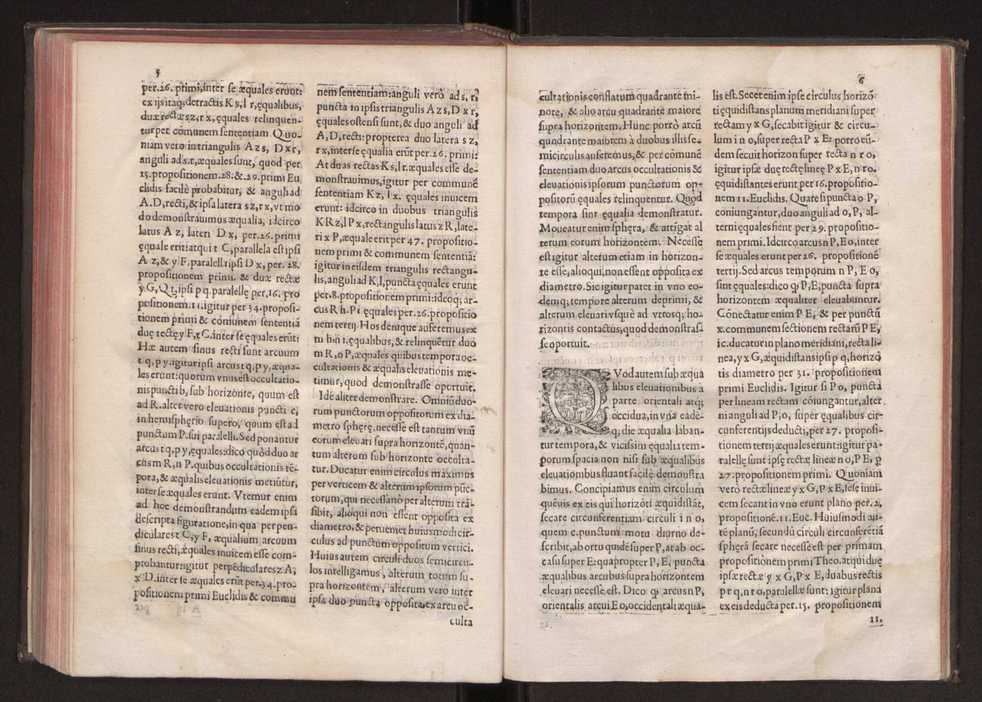 5
per.26. primi, inter se æquales erunt:
ex ijsitaq; detractis K s, l r, ęqualibus,
duæ rectæ s z, r x, ęquales relinquen-
tur per cõmunem sententiam Quo-
niam vero in triangulis A z s, D x r,
anguli ad s.r, æquales sunt, quod per
15. propositionem. 28: & .29. primi Eu
clidis facilè probabitur, & anguli ad
A. D, recti, & ipsa latera s z, r x, vt mo
do demonstrauimus æqualia, idcirco
latus A z, lateri D x, per .26. primi
ęquale erit: at qui t C, parallela est ipsi
A z, & y F. parallela ipsi D x, per. 28.
propositionem primi. & duæ rectæ
y G, Q t, ipsi p q. parallelę per, 16. pro
positionem. 11. igitur per 34. proposi-
tionem primi & cõmunem sententiã
duę rectę y F, t C. inter se ęquales erũt
Hæ autem sinus recti sunt arcuum
t q, p y. igitur ipsi arcus t q, p y, æqua-
les erunt: quorum vnus est occultatio-
nis puncti b, sub horizonte, quum est
ad R. alter vero eleuationis puncti c,
in hemisphęrio supero, quum est ad
punctum P. sui paralleli. Sed ponantur
arcus t q, p y, ęquales: dico quòd duo ar
cus m R, n P. quibus occultationis tẽ-
pora, & æqualis eleuationis metiũtur,
inter se æquales erunt. Vtemur enim
ad hoc demonstrandum eadem ipsi
descripta figuratione, in qua perpen-
diculares t C, y F, æqualium arcuum
sinus recti, æquales inuicem esse com-
probantur: igitur perpẽdiculares z A,
x D. inter se æquales erũt per. 34. pro-
positionem primi Euclidis & commu
nem sententiam: anguli verò ad s, r,
puncta in ipsis triangulis A z s, D x r,
ęquales ostensi sunt, & duo anguli ad
A, D, recti: propterea duo latera s z,
r x, inter se ęqualia erũt per. 26. primi:
At duas rectas K s, l r. æquales esse de-
monstrauimus, igitur per communẽ
sententiam K z, l x. ęquales inuicem
erunt: idcirco in duobus triangulis
K R z, l P x, rectangulis latus z R, late-
ri x P, æquale erit per 47. propositio-
nem primi & communem sententiã:
igitur in eisdem triangulis rectangu-
lis, anguli ad K l, puncta ęquales erunt
per. 8. propositionem primi: ideoq; ar-
cus R h. P i ęquales per. 26. propositio
nem tertij. Hos denique auferemus ex
m h n i. ęqualibus, & relinquẽtur duo
m R, o P, æquales quibus tempora oc-
cultationis & æqualis eleuationis me-
timur, quod demonstrasse oportuit.
Idẽ aliter demonstrare. Omniũ duo-
rum punctorum oppositorum ex dia-
metro sphęrę, necesse est tantum vnũ
eorum eleuari supra horizontẽ, quan-
tum alterum sub horizonte occulta-
tur. Ducatur enim circulus maximus
per verticem & alterum ipsorum pũc-
torum, qui necessariò per alterum trã-
sibit, alioqui non essent opposita ex
diametro, & perueniet huiusmodi cir-
culus ad punctum oppositum vertici.
Huius autem circuli duos semicircu-
los intelligamus, alterum totum su-
pra horizontem, alterum vero inter
ipsa duo puncta opposita: ex arcu oc-
culta
6
cultationis conflatum quadrante mi-
nore, & alio arcu quadrante maiore
supra horizontem. Hunc porrò arcũ
quadrante maiorem à duobus illis se-
micirculis auferemus, & per cõmunẽ
sententiam duo arcus occultationis &
eleuationis ipsorum punctorum op-
positorũ equales relinquentur. Quòd
tempora sint equalia demonstratur.
Moueatur enim sphęra, & attigat al-
terum eorum horizontem. Necesse
est igitur alterum etiam in horizon-
te esse, alioqui, non essent opposita ex
diametro. Sic igitur patet in vno eo-
demq; tempore alterum deprimi, &
alterum eleuari vsquè ad vtrosq; ho-
rizontis contactus, quod demonstras-
se oportuit.
QVod autem sub æqua
libus eleuationibus a
parte orientali atq;
occidua, in vna eadẽ-
q, die æqualia laban-
tur tempora, & vicissim equalia tem-
porum spacia non nisi sub æqualibus
eleuationibus fluant facilè demonstra
bimus. Concipiamus enim circulum
quẽuis ex eis qui horizõti æquidistãt,
secare circunferentiam circuli i n o,
quem e. punctum motu diurno de-
scribit, ab ortu quidẽ super P, at ab oc-
casu super E: quapropter P, E, puncta
æqualibus arcubus supra horizontem
eleuari necesse est. Dico q; arcus n P,
orientalis arcui E o, occidentali æqua-
lis est. Secet enim ipse circulus horizõ-
ti ęquidistans planum meridiani super
rectam y x G, secabit igitur & circu-
lum i n o, super recta P x E: porro eũ-
dem secuit horizon super recta n r o,
igitur ipsæ duę rectę lineę P x E, n r o.
ęquidistantes erunt per 16. propositio-
nem 11. Euclidis. Quare si puncta o P,
coniungantur, duo anguli ad o, P, al-
terni ęquales fient per 29. propositio-
nem primi. Idcirco arcus n P, E o, inter
se æquales erunt per 26. propositionẽ
tertij. Sed arcus temporum n P, E o,
sint equales: dico q; P, E, puncta supra
horizontem æqualiter eleuabuntur.
Cõnectatur enim P E, & per punctũ
x. communem sectionem rectarũ P E,
i c. ducatur in plano meridiani, recta li-
nea, y x G, æquidistans ipsi p q, horizõ
tis diametro per 31. propositionem
primi Euclidis. Igitur si P o, puncta
per lineam rectam cõiungantur, alter
ni anguli ad P, o, super ęqualibus cir-
cunferentijs deducti, per 27. proposi-
tionem tertij æquales erunt: igitur pa-
rallelę sunt ipsę rectæ lineæ n o, P E, p
27. propositionem primi. Quoniam
vero rectæ lineæ y x G, P x E, sese inui-
cem secant in vno erunt plano per. 2,
propositionẽ. 11. Euc. Huiusmodi au-
tẽ planũ, secundũ circuli circunferẽtiã
sphęrã secare necesse est per primam
propositionem primi Theo. at qui duę
ipsæ rectæ y x G, P x E, duabus rectis
p r q, n r o, parallelæ sunt: igitur plana
ex eis deducta per. 15. propositionem
11.